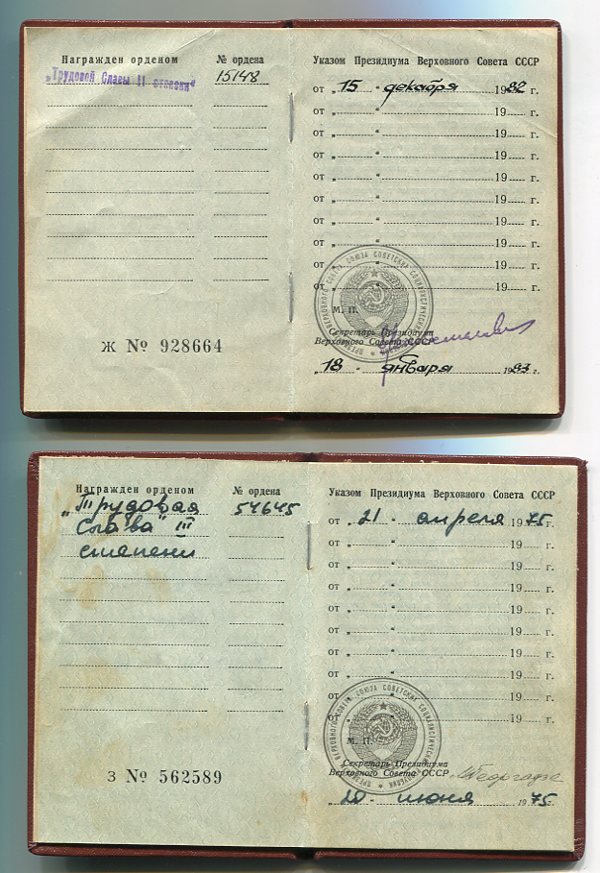 Награжден орденом № ордена
„Трудовой Славы II степени“ 15148
Указом Президиума Верховного Совета СССР
от „15“ декабря 1982 г.
от „ “ 19 г.
от „ “ 19 г.
от „ “ 19 г.
от „ “ 19 г.
от „ “ 19 г.
от „ “ 19 г.
от „ “ 19 г.
от „ “ 19 г.
от „ “ 19 г.
М. П.
Секретарь Президиума
Верховного Совета СССР
„18“ января 1983 г.
Ж № 928664
Награжден орденом № ордена
„Трудовая 54645
Слава" III
степени
Указом Президиума Верховного Совета СССР
от „21“ апреля 1975 г.
от „ “ 19 г.
от „ “ 19 г.
от „ “ 19 г.
от „ “ 19 г.
от „ “ 19 г.
от „ “ 19 г.
от „ “ 19 г.
от „ “ 19 г.
от „ “ 19 г.
М. П.
Секретарь Президиума
Верховного Совета СССР М Георгадзе
„20“ июня 1975 г.
З № 562589